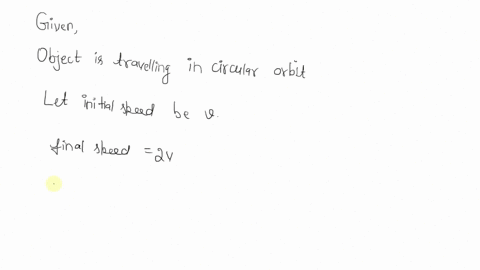 Given,
Object is travelling in circular orbit
Let initial speed be v.
final speed = 2v